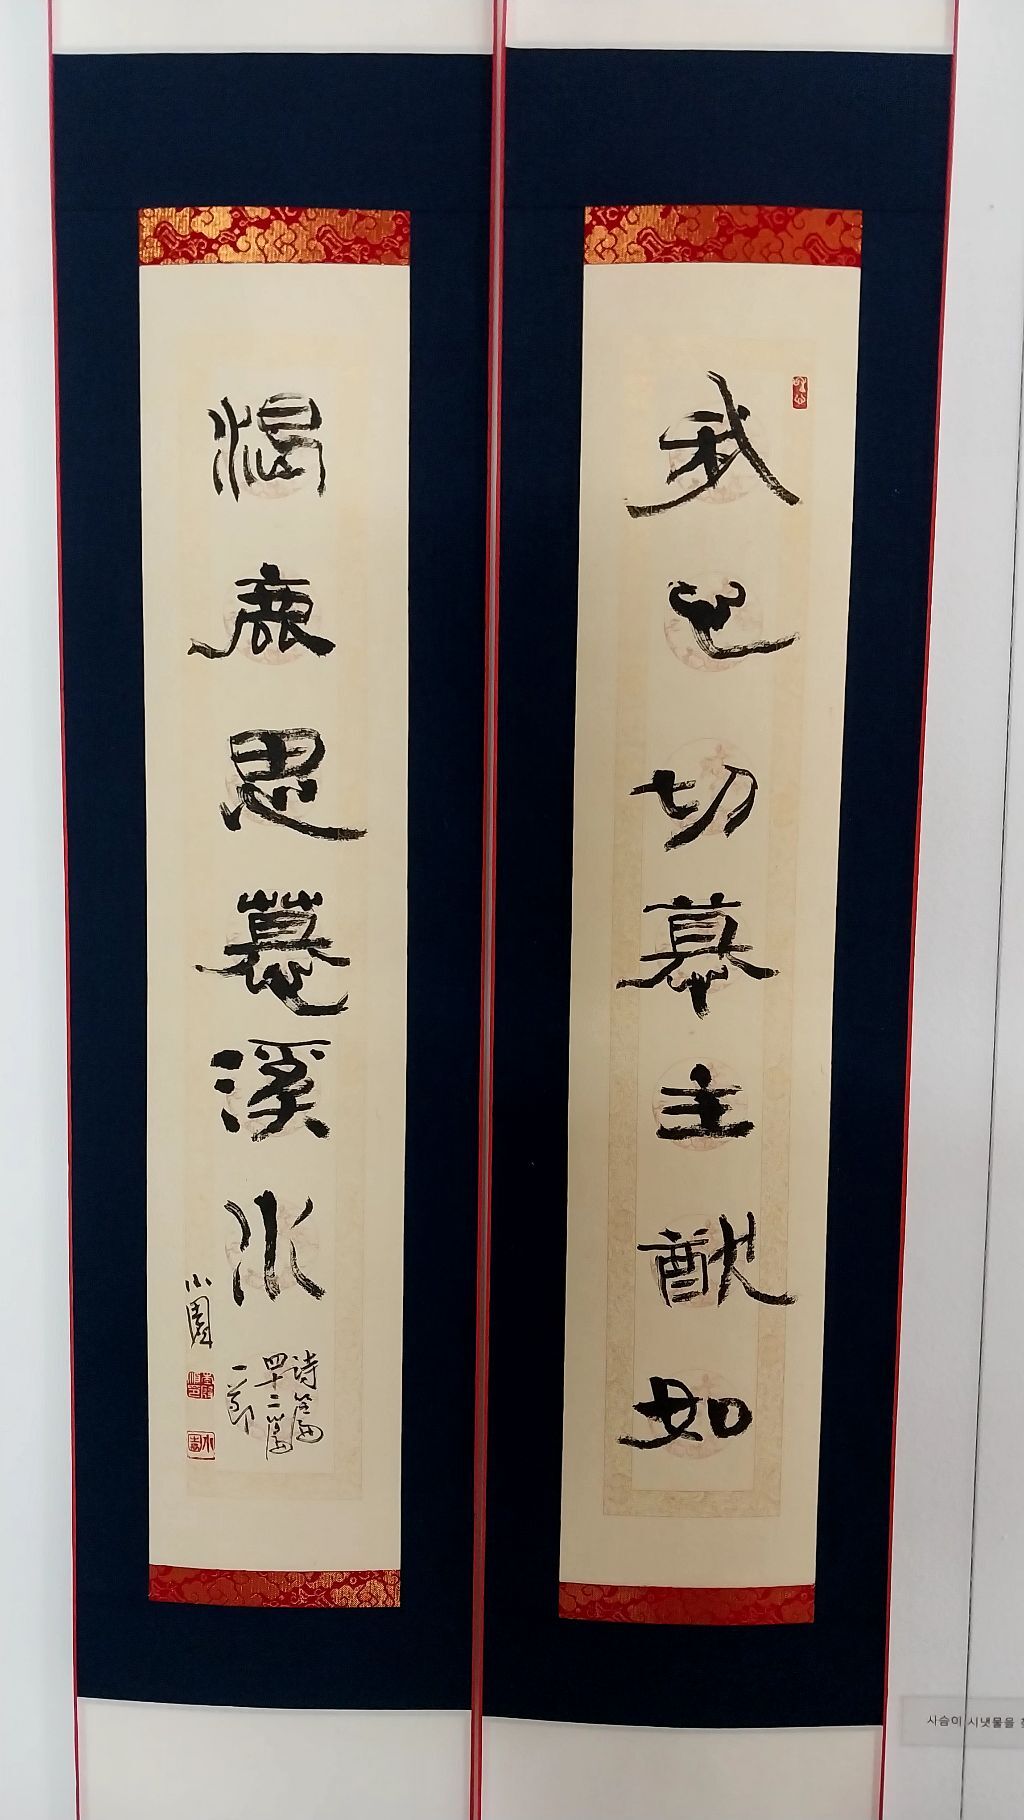 我心切慕主猷如
渴鹿思慕溪水
詩篇
四十二篇
一節
小園
사슴이 시냇물을